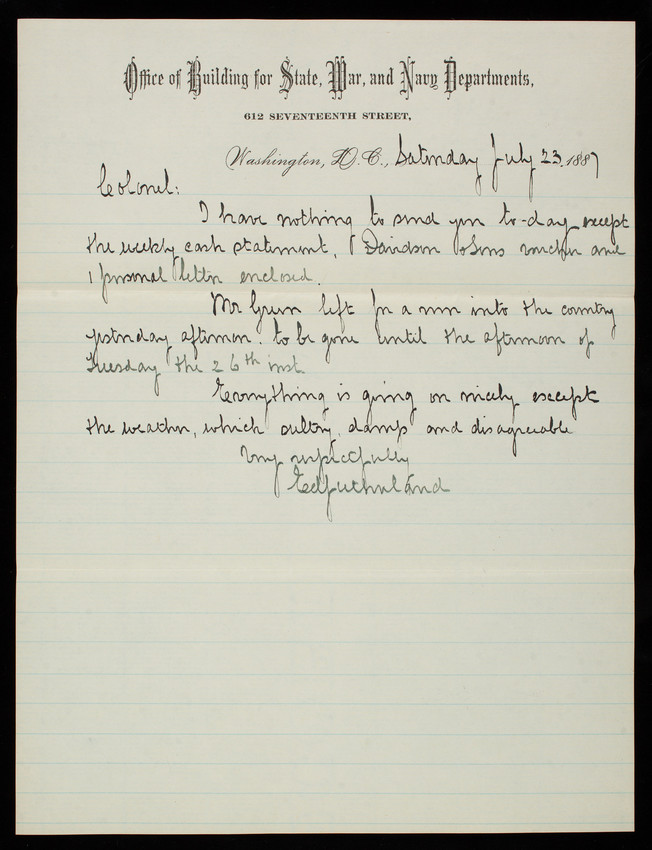 Office of Building for State, War, and Navy Departments,
612 SEVENTEENTH STREET,
Washington, D.C., Saturday July 23. 1887
Colonel:
I have nothing to send you to-day except
the weekly cash statement, 1 Davidson & Sons voucher and
1 personal letter enclosed.
Mr Green left for a run into the country
yesterday afternoon: to be gone until the afternoon of
Tuesday the 26th inst.
Everything is going on nicely except
the weather, which sultry, damp and disagreeable
Very respectfully